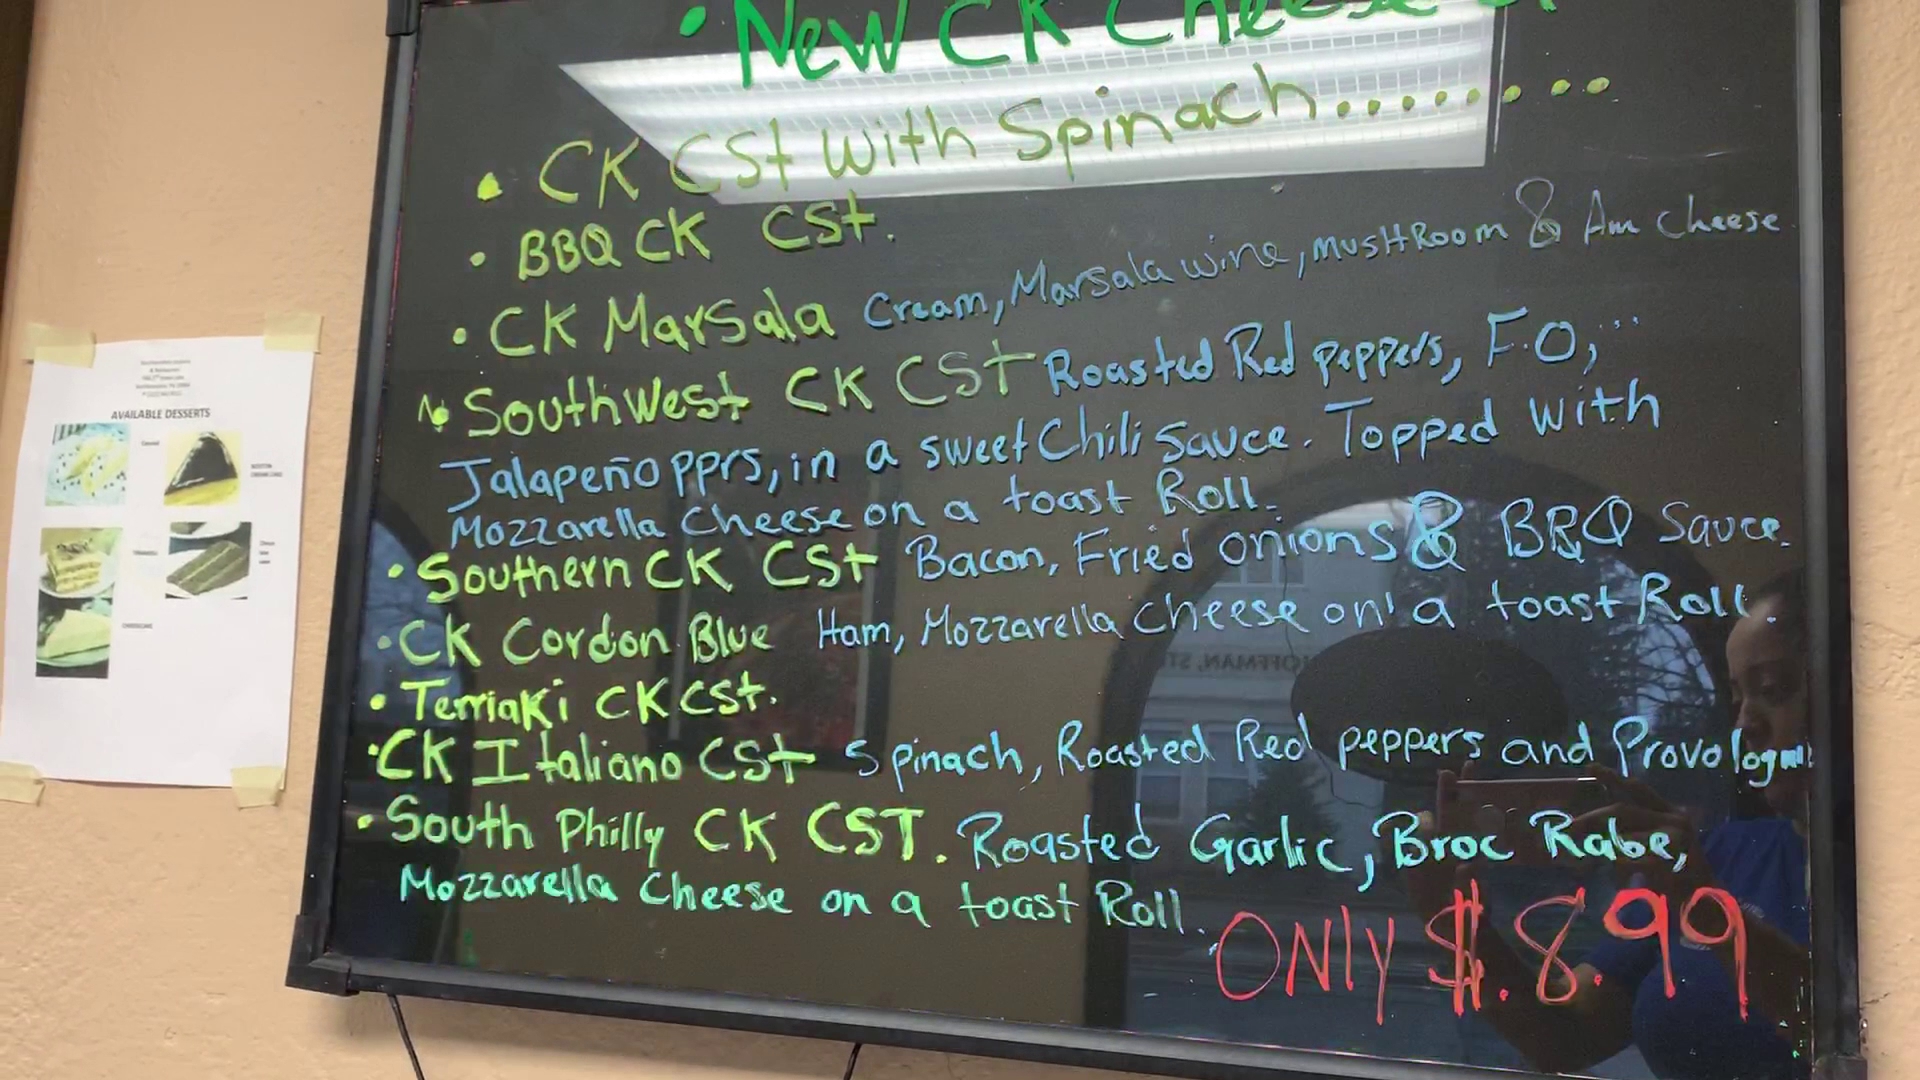 • New CK Cheese
• CK CSt with Spinach.........
• BBQ CK CSt.
• CK Marsala Cream, Marsala wine, mushRoom & Am cheese
• Southwest CK CST Roasted Red peppers, F.O,...
Jalapeño pprs, in a sweet Chili Sauce. Topped with
Mozzarella Cheese on a toast Roll.
• Southern CK CSt Bacon, Fried onions & BBQ Sauce.
• CK Cordon Blue Ham, Mozzarella cheese on a toast Roll.
• Terriaki CK CSt.
• CK Italiano CSt Spinach, Roasted Red peppers and Provolog
• South Philly CK CST. Roasted Garlic, Broc Rabe,
Mozzarella Cheese on a toast Roll.
ONLY $.8.99
AVAILABLE DESSERTS